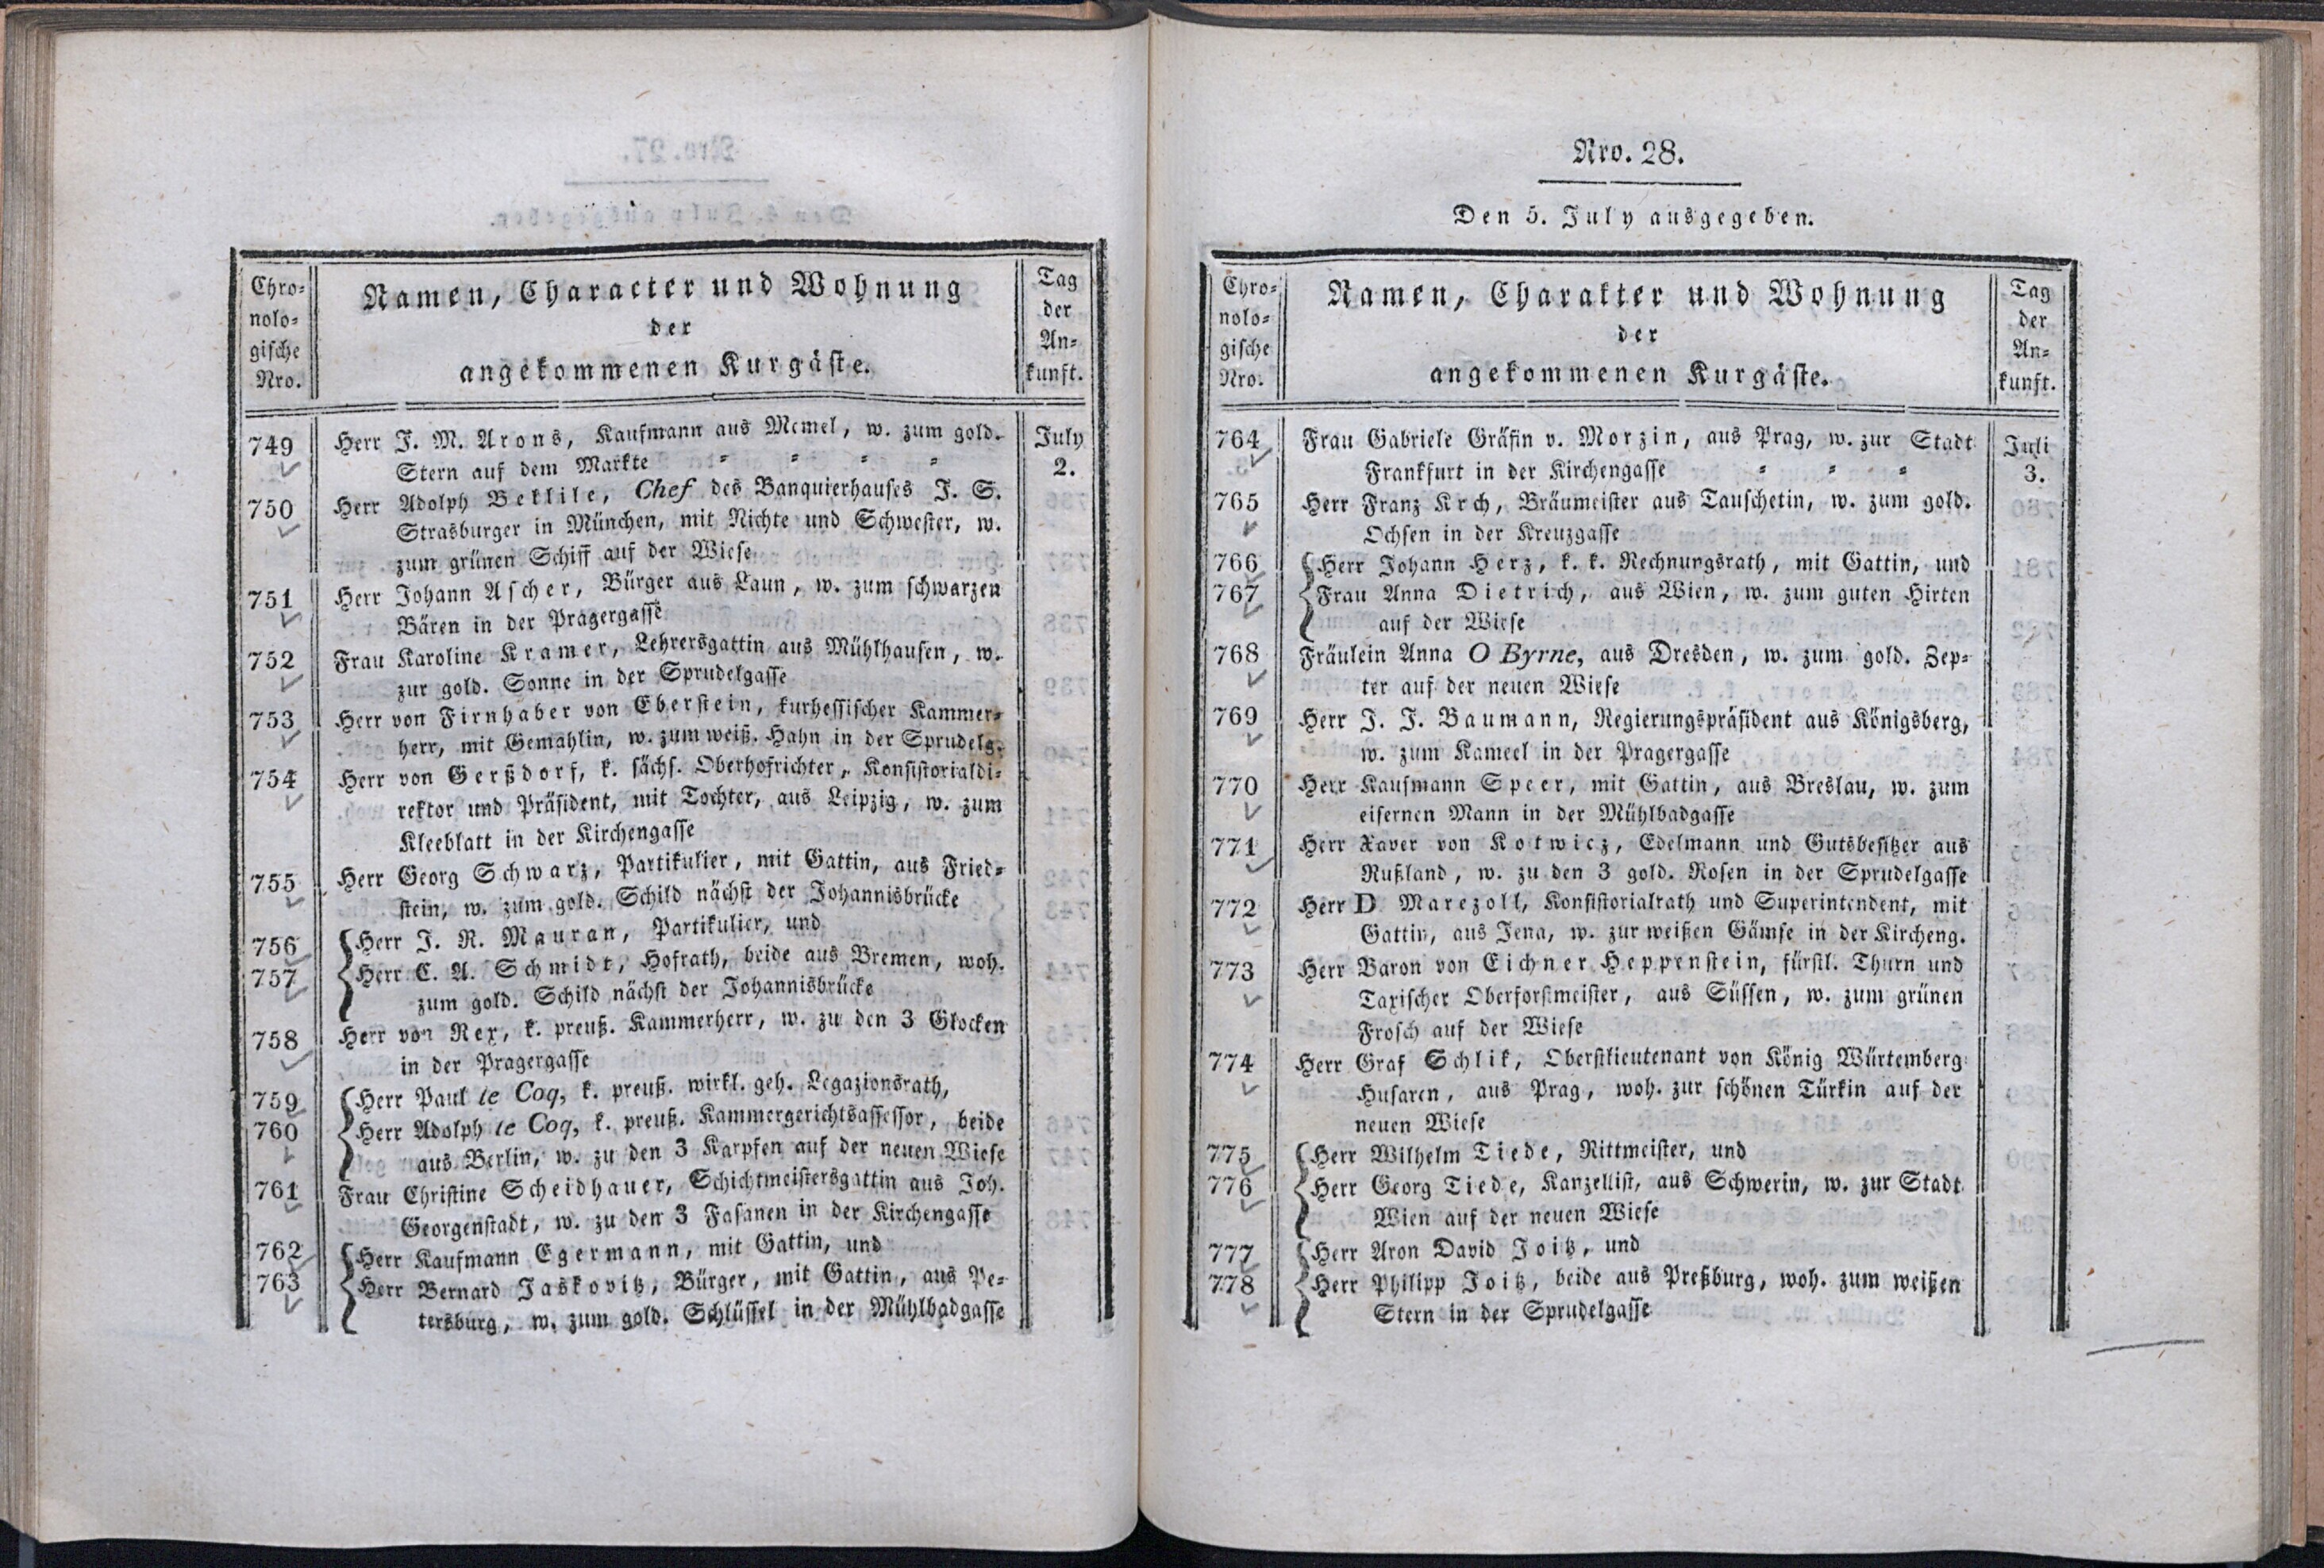 Chro-
nolo-
gische
Nro.
Namen, Character und Wohnung
der
angekommenen Kurgäste.
Tag
der
An-
kunft.
749 Herr J. M. Arons, Kaufmann aus Memel, w. zum gold. July
Stern auf dem Markte = = = = 2.
750 Herr Adolph Beklile, Chef des Banquierhauses J. S.
Strasburger in München, mit Nichte und Schwester, w.
zum grünen Schiff auf der Wiese
751 Herr Johann Ascher, Bürger aus Laun, w. zum schwarzen
Bären in der Pragergasse
752 Frau Karoline Kramer, Lehrersgattin aus Mühlhausen, w.
zur gold. Sonne in der Sprudelgasse
753 Herr von Firnhaber von Eberstein, kurhessischer Kammer-
herr, mit Gemahlin, w. zum weiß. Hahn in der Sprudelg.
754 Herr von Gerßdorf, k. sächs. Oberhofrichter, Konsistorialdi-
rektor und Präsident, mit Tochter, aus Leipzig, w. zum
Kleeblatt in der Kirchengasse
755 Herr Georg Schwarz, Partikulier, mit Gattin, aus Fried-
stein, w. zum gold. Schild nächst der Johannisbrücke
756 Herr J. R. Mauran, Partikulier, und
757 Herr C. A. Schmidt, Hofrath, beide aus Bremen, woh.
zum gold. Schild nächst der Johannisbrücke
758 Herr von Rex, k. preuß. Kammerherr, w. zu den 3 Glocken
in der Pragergasse
759 Herr Paul le Coq, k. preuß. wirkl. geh. Legazionsrath,
760 Herr Adolph le Coq, k. preuß. Kammergerichtsassessor, beide
aus Berlin, w. zu den 3 Karpfen auf der neuen Wiese
761 Frau Christine Scheidhauer, Schichtmeistersgattin aus Joh.
Georgenstadt, w. zu den 3 Fasanen in der Kirchengasse
762 Herr Kaufmann Egermann, mit Gattin, und
763 Herr Bernard Jaskovitz, Bürger, mit Gattin, aus Pe-
tersburg, w. zum gold. Schlüssel in der Mühlbadgasse
Nro. 28.
Den 5. July ausgegeben.
Chro-
nolo-
gische
Nro.
Namen, Charakter und Wohnung
der
angekommenen Kurgäste.
Tag
der
An-
kunft.
764 Frau Gabriele Gräfin v. Morzin, aus Prag, w. zur Stadt Juli
Frankfurt in der Kirchengasse = = = 3.
765 Herr Franz Krch, Bräumeister aus Tauschetin, w. zum gold.
Ochsen in der Kreuzgasse
766 Herr Johann Herz, k. k. Rechnungsrath, mit Gattin, und
767 Frau Anna Dietrich, aus Wien, w. zum guten Hirten
auf der Wiese
768 Fräulein Anna O Byrne, aus Dresden, w. zum gold. Zep-
ter auf der neuen Wiese
769 Herr J. J. Baumann, Regierungspräsident aus Königsberg,
w. zum Kameel in der Pragergasse
770 Herr Kaufmann Speer, mit Gattin, aus Breslau, w. zum
eisernen Mann in der Mühlbadgasse
771 Herr Xaver von Kotwicz, Edelmann und Gutsbesitzer aus
Rußland, w. zu den 3 gold. Rosen in der Sprudelgasse
772 Herr D. Marezoll, Konsistorialrath und Superintendent, mit
Gattin, aus Jena, w. zur weißen Gämse in der Kircheng.
773 Herr Baron von Eichner Heppenstein, fürstl. Thurn und
Taxischer Oberforstmeister, aus Süssen, w. zum grünen
Frosch auf der Wiese
774 Herr Graf Schlik, Oberstlieutenant von König Würtemberg
Husaren, aus Prag, woh. zur schönen Türkin auf der
neuen Wiese
775 Herr Wilhelm Tiede, Rittmeister, und
776 Herr Georg Tiede, Kanzellist, aus Schwerin, w. zur Stadt
Wien auf der neuen Wiese
777 Herr Aron David Joitz, und
778 Herr Philipp Joitz, beide aus Preßburg, woh. zum weißen
Stern in der Sprudelgasse